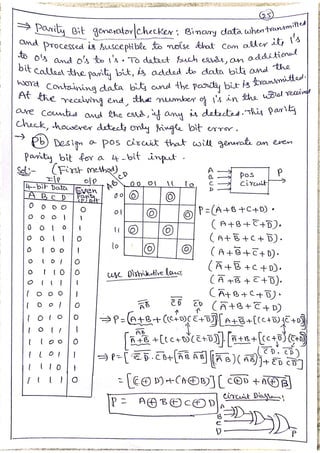 (25)
⇒ Parity Bit generator/checker: Binary data when transmitted
and processed is susceptible to noise that can alter its 1's
to 0's and 0's to 1's. To detect such errors, an additional
bit called the parity bit, is added to data bits and the
word containing data bits and the parity bit is transmitted.
At the receiving end, the number of 1's in the word received
are counted and the error, if any is detected. This parity
check, however detects only single bit error.
→ Pb) Design a POS circuit that will generate an even
parity bit for a 4-bit input.
Sol:- (First method)
i/p o/p
4-bit Data Even
A B C D Parity Bit
0 0 0 0 0
0 0 0 1 1
0 0 1 0 1
0 0 1 1 0
0 1 0 0 1
0 1 0 1 0
0 1 1 0 0
0 1 1 1 1
1 0 0 0 1
1 0 0 1 0
1 0 1 0 0
1 0 1 1 1
1 1 0 0 0
1 1 0 1 1
1 1 1 0 1
1 1 1 1 0
AB CD 00 01 11 10
00 0 0
01 0 0
11 0 0
10 0 0
A B C D POS circuit P
P = (A+B+C+D).
(A+B+C̅+D̅).
(A+B̅+C+D̅).
(A+B̅+C̅+D).
(A̅+B̅+C+D).
(A̅+B̅+C̅+D̅).
(A̅+B+C+D̅).
(A̅+B+C̅+D).
use Distributive law
⇒ P = [A+B+((C+D)(C̅+D̅))]
⇒ P =
= [(C⊕D)+(A⊕B)]
P = A⊕B⊕C⊕D
Circuit Diagram:
A
B
C
D
P